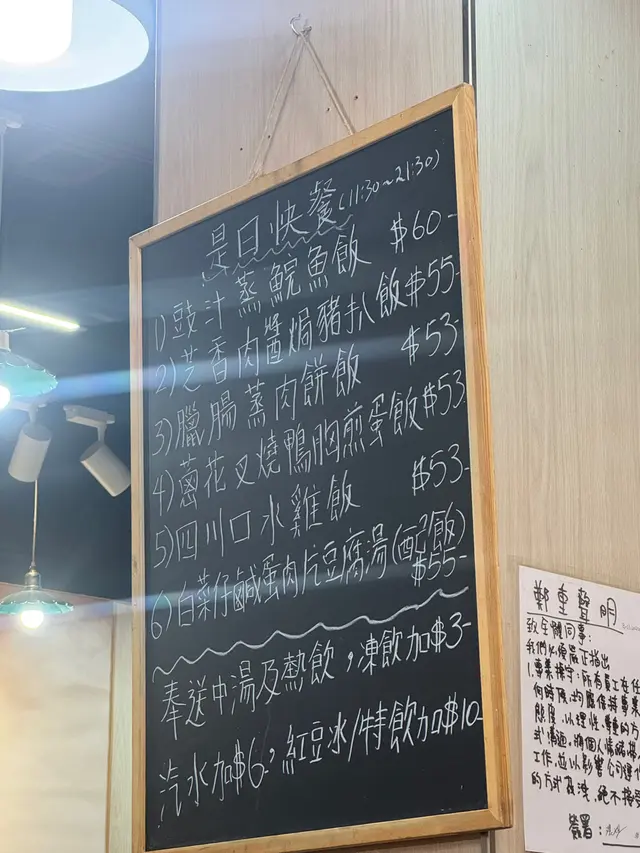 是日快餐(11:30~21:30)
1)豉汁蒸鯇魚飯 $60-
2)芝香肉醬焗豬扒飯$55-
3)臘腸蒸肉餅飯 $53-
4)蔥花叉燒鴨胸煎蛋飯$53
5)四川口水雞飯 $53-
6)白菜仔鹹蛋肉片豆腐湯(配飯)
$55-
奉送中湯及熱飲,凍飲加$3-
汽水加$6,紅豆冰/特飲加$10-
鄭重聲明
致全體同事:
我們必須嚴正指出
1.專業操守:所有員工在任
何時候,均應保持專業
態度,以理性、尊重的方
式溝通。將個人情緒
工作,並以影響公司運
的方式表達,絕不接受
簽署: